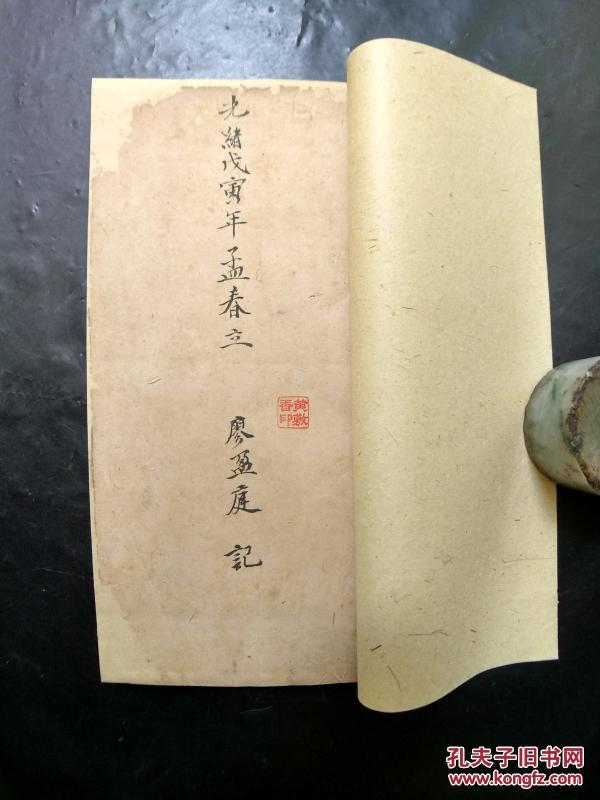 光緒戊寅年孟春立 廖盈庭 記
黄敷香印
孔夫子旧书网
www.kongfz.com